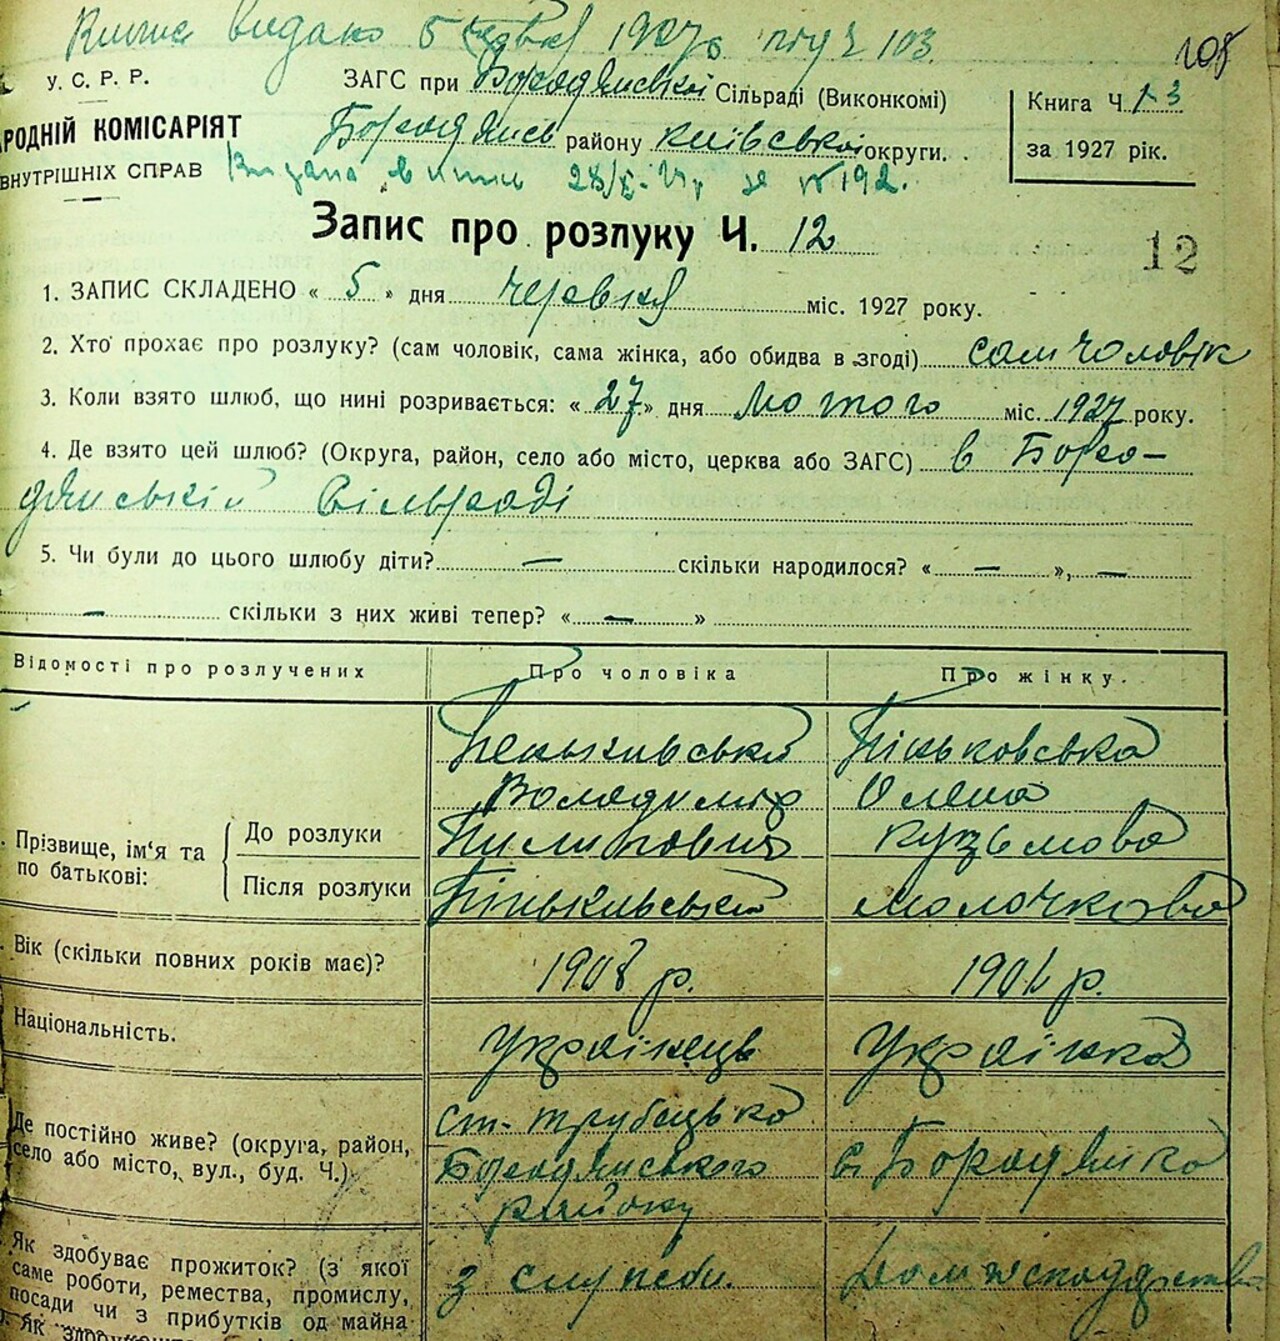 видано 5 1927 р. під ч 103.
108
У. С. Р. Р.
ЗАГС при Бородянській Сільраді (Виконкомі)
Книга Ч. 1-3
РОДНІЙ КОМІСАРІЯТ
Бородянськ району київської округи.
за 1927 рік.
ВНУТРІШНІХ СПРАВ
за № 192.
Запис про розлуку Ч. 12
12
1. ЗАПИС СКЛАДЕНО « 5 » дня червня міс. 1927 року.
2. Хто прохає про розлуку? (сам чоловік, сама жінка, або обидва в згоді) сам чоловік
3. Коли взято шлюб, що нині розривається: « 27 » дня лютого міс. 1927 року.
4. Де взято цей шлюб? (Округа, район, село або місто, церква або ЗАГС) в Боро-
дянській Сільраді
5. Чи були до цього шлюбу діти? — скільки народилося? « — », —
— скільки з них живі тепер? « — »
Відомості про розлучених
Про чоловіка
Про жінку.
Прізвище, ім'я та по батькові:
До розлуки
Після розлуки
Володимір
Пилипович
Піньковська
Олена
Кузьмова
Молочкова
Вік (скільки повних років має)?
1908 р.
р.
Національність.
Українець
Українка
Де постійно живе? (округа, район,
село або місто, вул., буд. Ч.).
ст. трубецька
Бородянського
району
с. Бородянка
Як здобуває прожиток? (з якої
саме роботи, ремества, промислу,
посади чи з прибутків од майна
з служби.